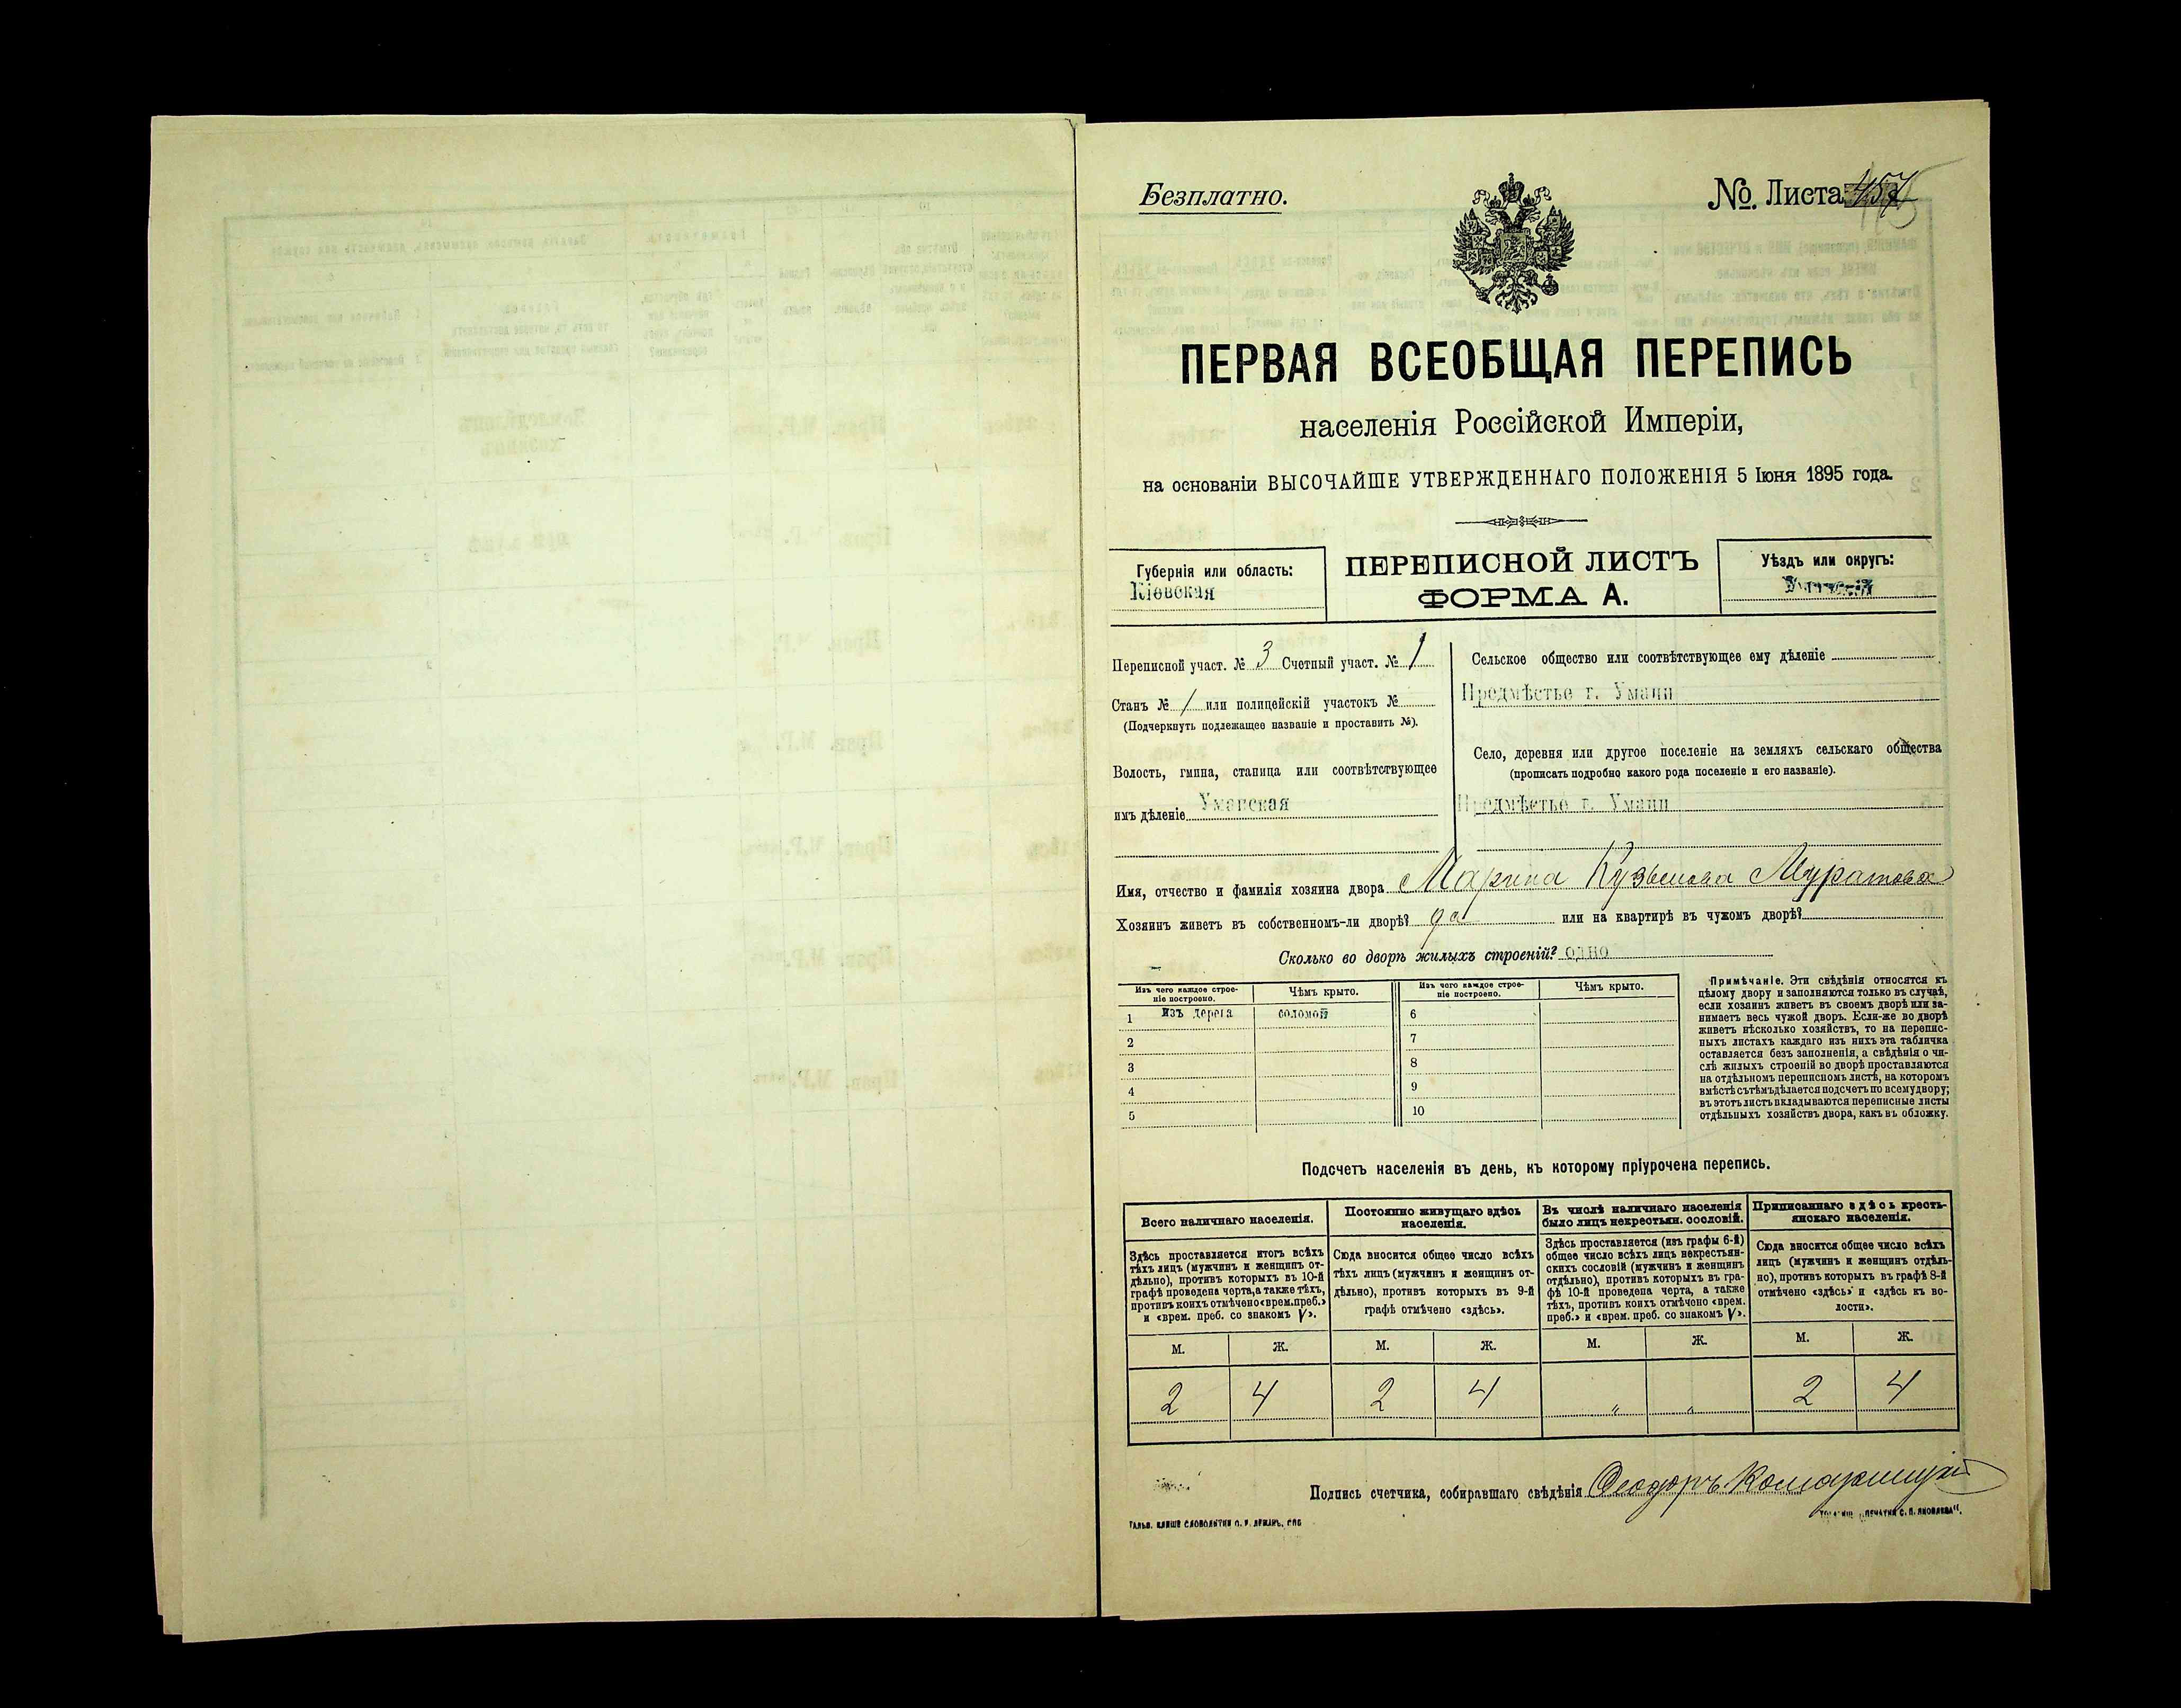 Безплатно.
№. Листа 457
ПЕРВАЯ ВСЕОБЩАЯ ПЕРЕПИСЬ
населенія Россійской Имперіи,
на основаніи ВЫСОЧАЙШЕ УТВЕРЖДЕННАГО ПОЛОЖЕНІЯ 5 Іюня 1895 года.
Губернія или область:
Кіевская
ПЕРЕПИСНОЙ ЛИСТЪ
ФОРМА А.
Уѣздъ или округъ:
Переписной участ. № 3 Счетный участ. № 1
Станъ № 1 или полицейскій участокъ №
(Подчеркнуть подлежащее названіе и проставить №).
Волость, гмина, станица или соотвѣтствующее
имъ дѣленіе Уманская
Сельское общество или соотвѣтствующее ему дѣленіе
Предмѣстье г. Умани
Село, деревня или другое поселеніе на земляхъ сельскаго общества
(прописать подробно какого рода поселеніе и его названіе).
Предмѣстье г. Умани
Имя, отчество и фамилія хозяина двора Марина Кузьмова Муратова
Хозяинъ живетъ въ собственномъ-ли дворѣ? да или на квартирѣ въ чужомъ дворѣ?
Сколько во дворѣ жилыхъ строеній? одно
Изъ чего каждое строе-
ніе построено.
Чѣмъ крыто.
Изъ чего каждое строе-
ніе построено.
Чѣмъ крыто.
1 Изъ дерева соломой 6
2 7
3 8
4 9
5 10
Примѣчаніе. Эти свѣдѣнія относятся къ
цѣлому двору и заполняются только въ случаѣ,
если хозяинъ живетъ въ своемъ дворѣ или за-
нимаетъ весь чужой дворъ. Если-же во дворѣ
живетъ нѣсколько хозяйствъ, то на перепис-
ныхъ листахъ каждаго изъ нихъ эта табличка
оставляется безъ заполненія, а свѣдѣнія о чи-
слѣ жилыхъ строеній во дворѣ проставляются
на отдѣльномъ переписномъ листѣ, на которомъ
вмѣстѣ съ тѣмъ дѣлается подсчетъ по всему двору;
въ этотъ листъ вкладываются переписные листы
отдѣльныхъ хозяйствъ двора, какъ въ обложку.
Подсчетъ населенія въ день, къ которому пріурочена перепись.
Всего наличнаго населенія.
Здѣсь проставляется итогъ всѣхъ
тѣхъ лицъ (мужчинъ и женщинъ от-
дѣльно), противъ которыхъ въ 10-й
графѣ проведена черта, а также тѣхъ,
противъ коихъ отмѣчено «врем. преб.»
и «врем. преб. со знакомъ V».
Постоянно живущаго здѣсь
населенія.
Сюда вносится общее число всѣхъ
тѣхъ лицъ (мужчинъ и женщинъ от-
дѣльно), противъ которыхъ въ 9-й
графѣ отмѣчено «здѣсь».
Въ числѣ наличнаго населенія
было лицъ некрестьян. сословій.
Здѣсь проставляется (изъ графы 6-й)
общее число всѣхъ лицъ некрестьян-
скихъ сословій (мужчинъ и женщинъ
отдѣльно), противъ которыхъ въ гра-
фѣ 10-й проведена черта, а также
тѣхъ, противъ коихъ отмѣчено «врем.
преб.» и «врем. преб. со знакомъ V».
Приписаннаго здѣсь кресть-
янскаго населенія.
Сюда вносится общее число всѣхъ
лицъ (мужчинъ и женщинъ отдѣль-
но), противъ которыхъ въ графѣ 8-й
отмѣчено «здѣсь» и «здѣсь къ во-
лости».
М. Ж. М. Ж. М. Ж. М. Ж.
2 4 2 4 " " 2 4
Подпись счетчика, собиравшаго свѣдѣнія Ѳеодоръ Комарницкій